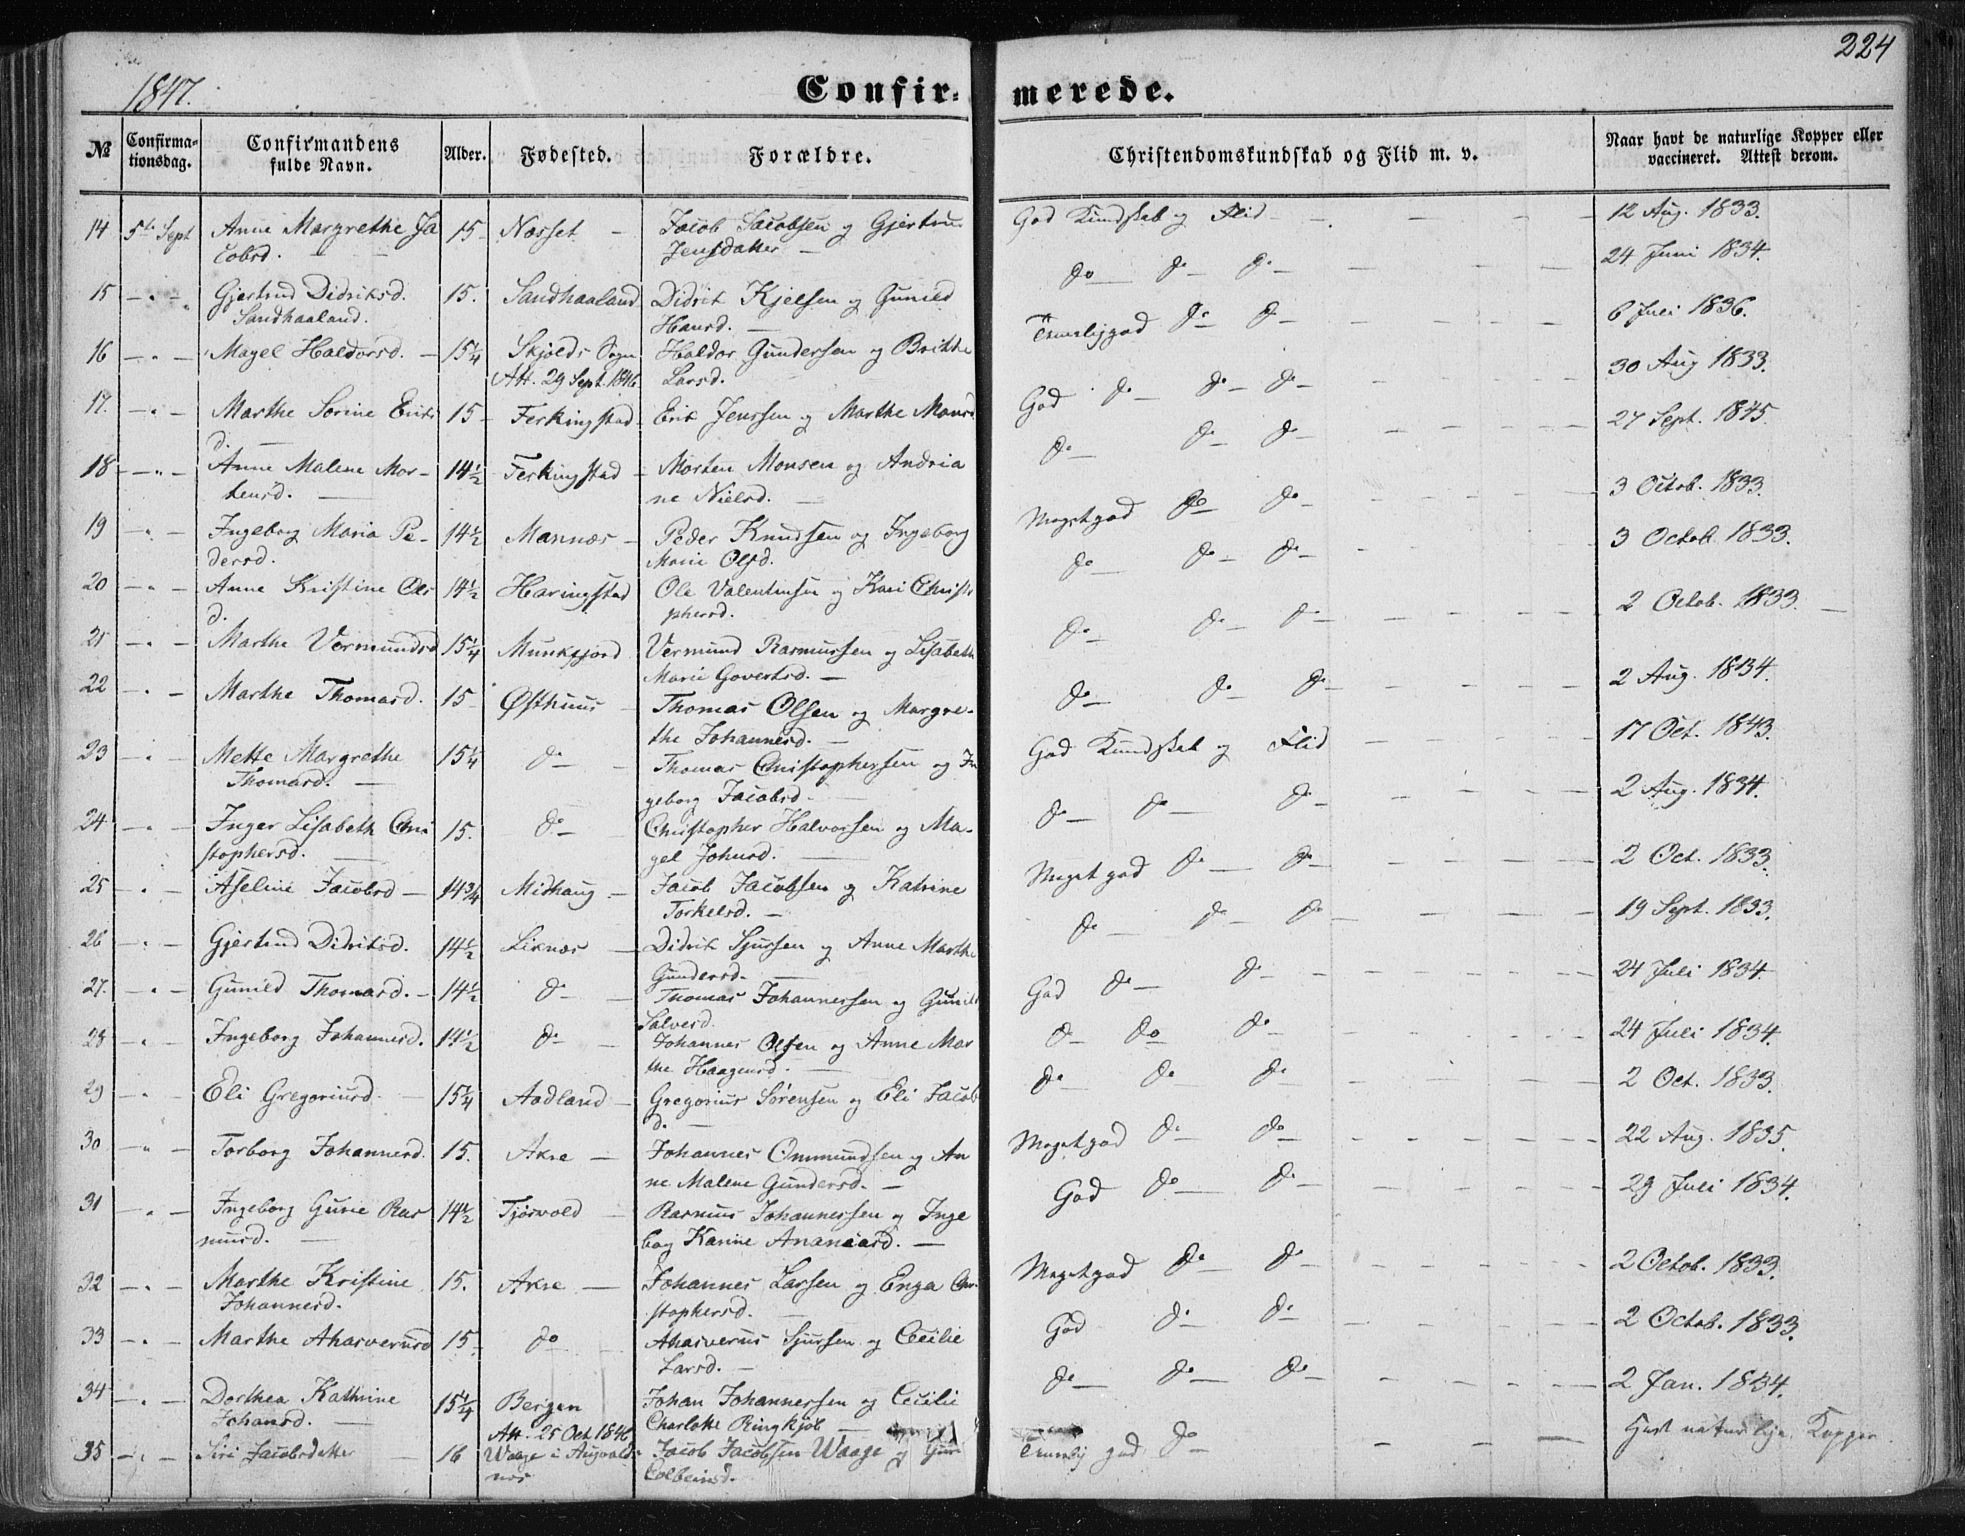 1847.
Confir-
merede.
224
№
Confirma-
tionsdag.
Confirmandens
fulde Navn.
Alder.
Fødested.
Forældre.
Christendomskundskab og Flid m. v.
Naar havt de naturlige Kopper eller
vaccineret. Attest derom.
14 5te Sept Anne Margrethe Ja 15 Næsset Jacob Jacobsen og Gjertrud God Kundskab og Flid 12 Aug. 1833.
cobsd. Jensdatter
15 Gjertrud Didriksd. 15. Sandhaaland Didrik Kjelsen og Gunild do do do 24 Juni 1834.
Sandhaaland. Hansd.
16 Magel Haldorsd. 15¼ Skjolds Sogn Haldor Gundersen og Brithe Temeligod do do 6 Juli 1836.
Att. 29 Sept. 1846 Larsd.
17. Marthe Serine Eriks 15 Ferkingstad Erik Jenssen og Marthe Monsd God do do do 30 Aug 1833.
d.
18 Anne Malene Mor- 14½ Ferkingstad Morten Monsen og Andria do do do 27 Sept. 1845.
tensd. ne Nielsd.
19 Ingeborg Maria Pe- 14½ Mannæs Peder Knudsen og Ingeborg Megetgod do do 3 Octob. 1833.
dersd. Marie Olsd.
20 Anne Kristine Ols 14½ Haringstad Ole Valentinsen og Kari Christo do do do 3 Octob. 1833.
d. phersd.
21 Marthe Vermundsd 15¼ Munkejord Vermund Rasmussen og Lisabeth do do do 2 Octob. 1833.
Marie Govertsd.
22 Marthe Thomasd. 15 Østhuus Thomas Olsen og Margre- do do do 2 Aug. 1834.
the Johannesd.
23 Mette Margrethe 15¼ do Thomas Christophersen og In God Kundskab og Flid 17 Oct. 1843.
Thomasd. geborg Jacobsd.
24 Inger Lisabeth Chri 15. do Christopher Halvorsen og Ma- do do do 2 Aug. 1834.
stophersd. gel Johnsd.
25 Aseline Jacobsd 14¾ Midhaug Jacob Jacobsen og Katrine Meget god do do 2 Oct. 1833.
Torkelsd.
26 Gjertrud Didriksd. 14½ Liknæs Didrik Sjursen og Anne Marthe do do do 19 Sept. 1833.
Gundersd.
27. Gunild Thomasd. 14½ do Thomas Johannessen og Gunild God do do 24 Juli 1834.
Salvesd.
28 Ingeborg Johannesd. 14½ do Johannes Olsen og Anne Mar do do do 24 Juli 1834.
the Haagensd.
29 Eli Gregoriusd. 15¼ Aadland Gregorius Sørensen og Eli Jacob do do do 2 Oct. 1833.
d.
30 Torborg Johannesd. 15. Akre Johannes Ommundsen og An Megetgod do do 22 Aug. 1835.
ne Malene Gundersd.
31 Ingeborg Gurie Ras 14½ Tjøsvold Rasmus Johannessen og Inge God do do 29 Juli 1834.
musd. borg Karine Ananiasd.
32 Marthe Kristine 15. Akre Johannes Larsen og Enga Chri Megetgod do do 2 Octob. 1833.
Johannesd. stophersd.
33 Marthe Ahasverusd 15 do Ahasverus Sjursen og Cecilie God do do 2 Octob. 1833.
Larsd.
34 Dorthea Kathrine 15¼ Bergen Johan Johannessen og Cecilie do do do 2 Jan. 1834.
Johansd. Att. 25 Oct 1846 Charlotte Ringkjøb
35 Siri Jacobsdatter 16 Waage i Augvalds- Jacob Jacobsen Waage og Guri Temelig god do Havt naturlige Kopper
nes Colbeinsd.